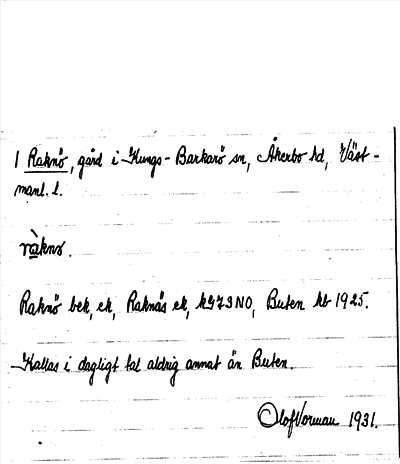 1 Raknö, gård i Kungs-Barkarö sn, Åkerbo hd, Väst-
manl. l.
Raknö bek, ek, Raknäs ek, Buten kb 1925.
Kallas i dagligt tal aldrig annat än Buten.
Olof Vorman 1931.